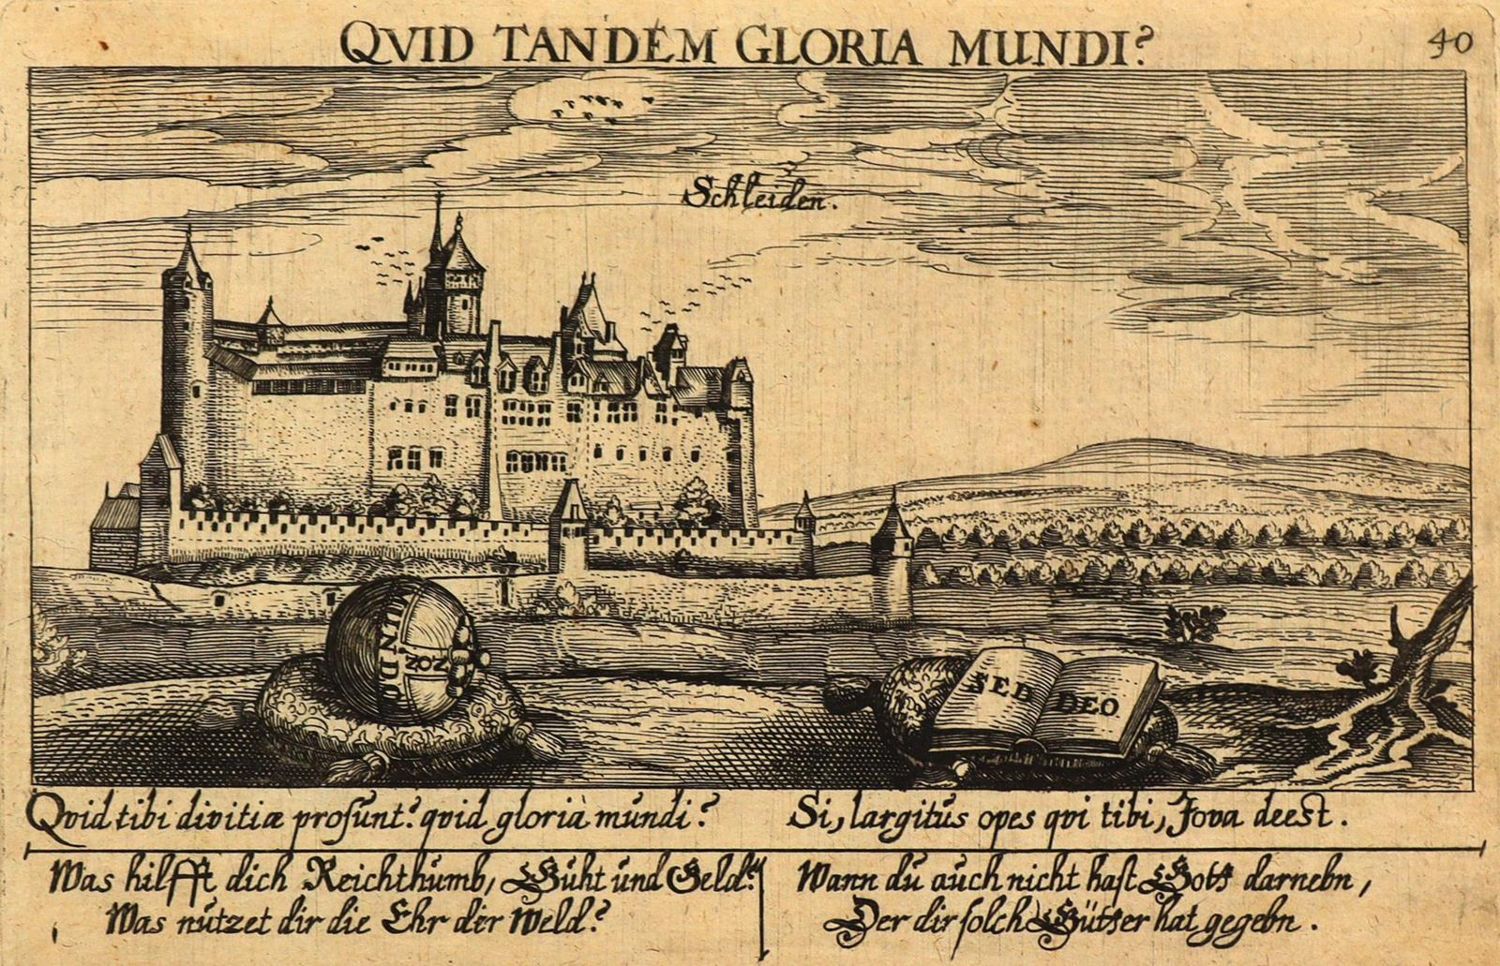 QVID TANDEM GLORIA MUNDI?
40
Schleiden.
MUNDO
NON
SED DEO.
Qvid tibi divitiæ prosunt? qvid gloria mundi?
Si, largitus opes qvi tibi, Jova deest.
Was hilfft dich Reichthumb, Guht und Geld?
Was nützet dir die Ehr der Weld?
Wann du auch nicht hast Gott darnebn,
Der dir solch Gütter hat gegebn.